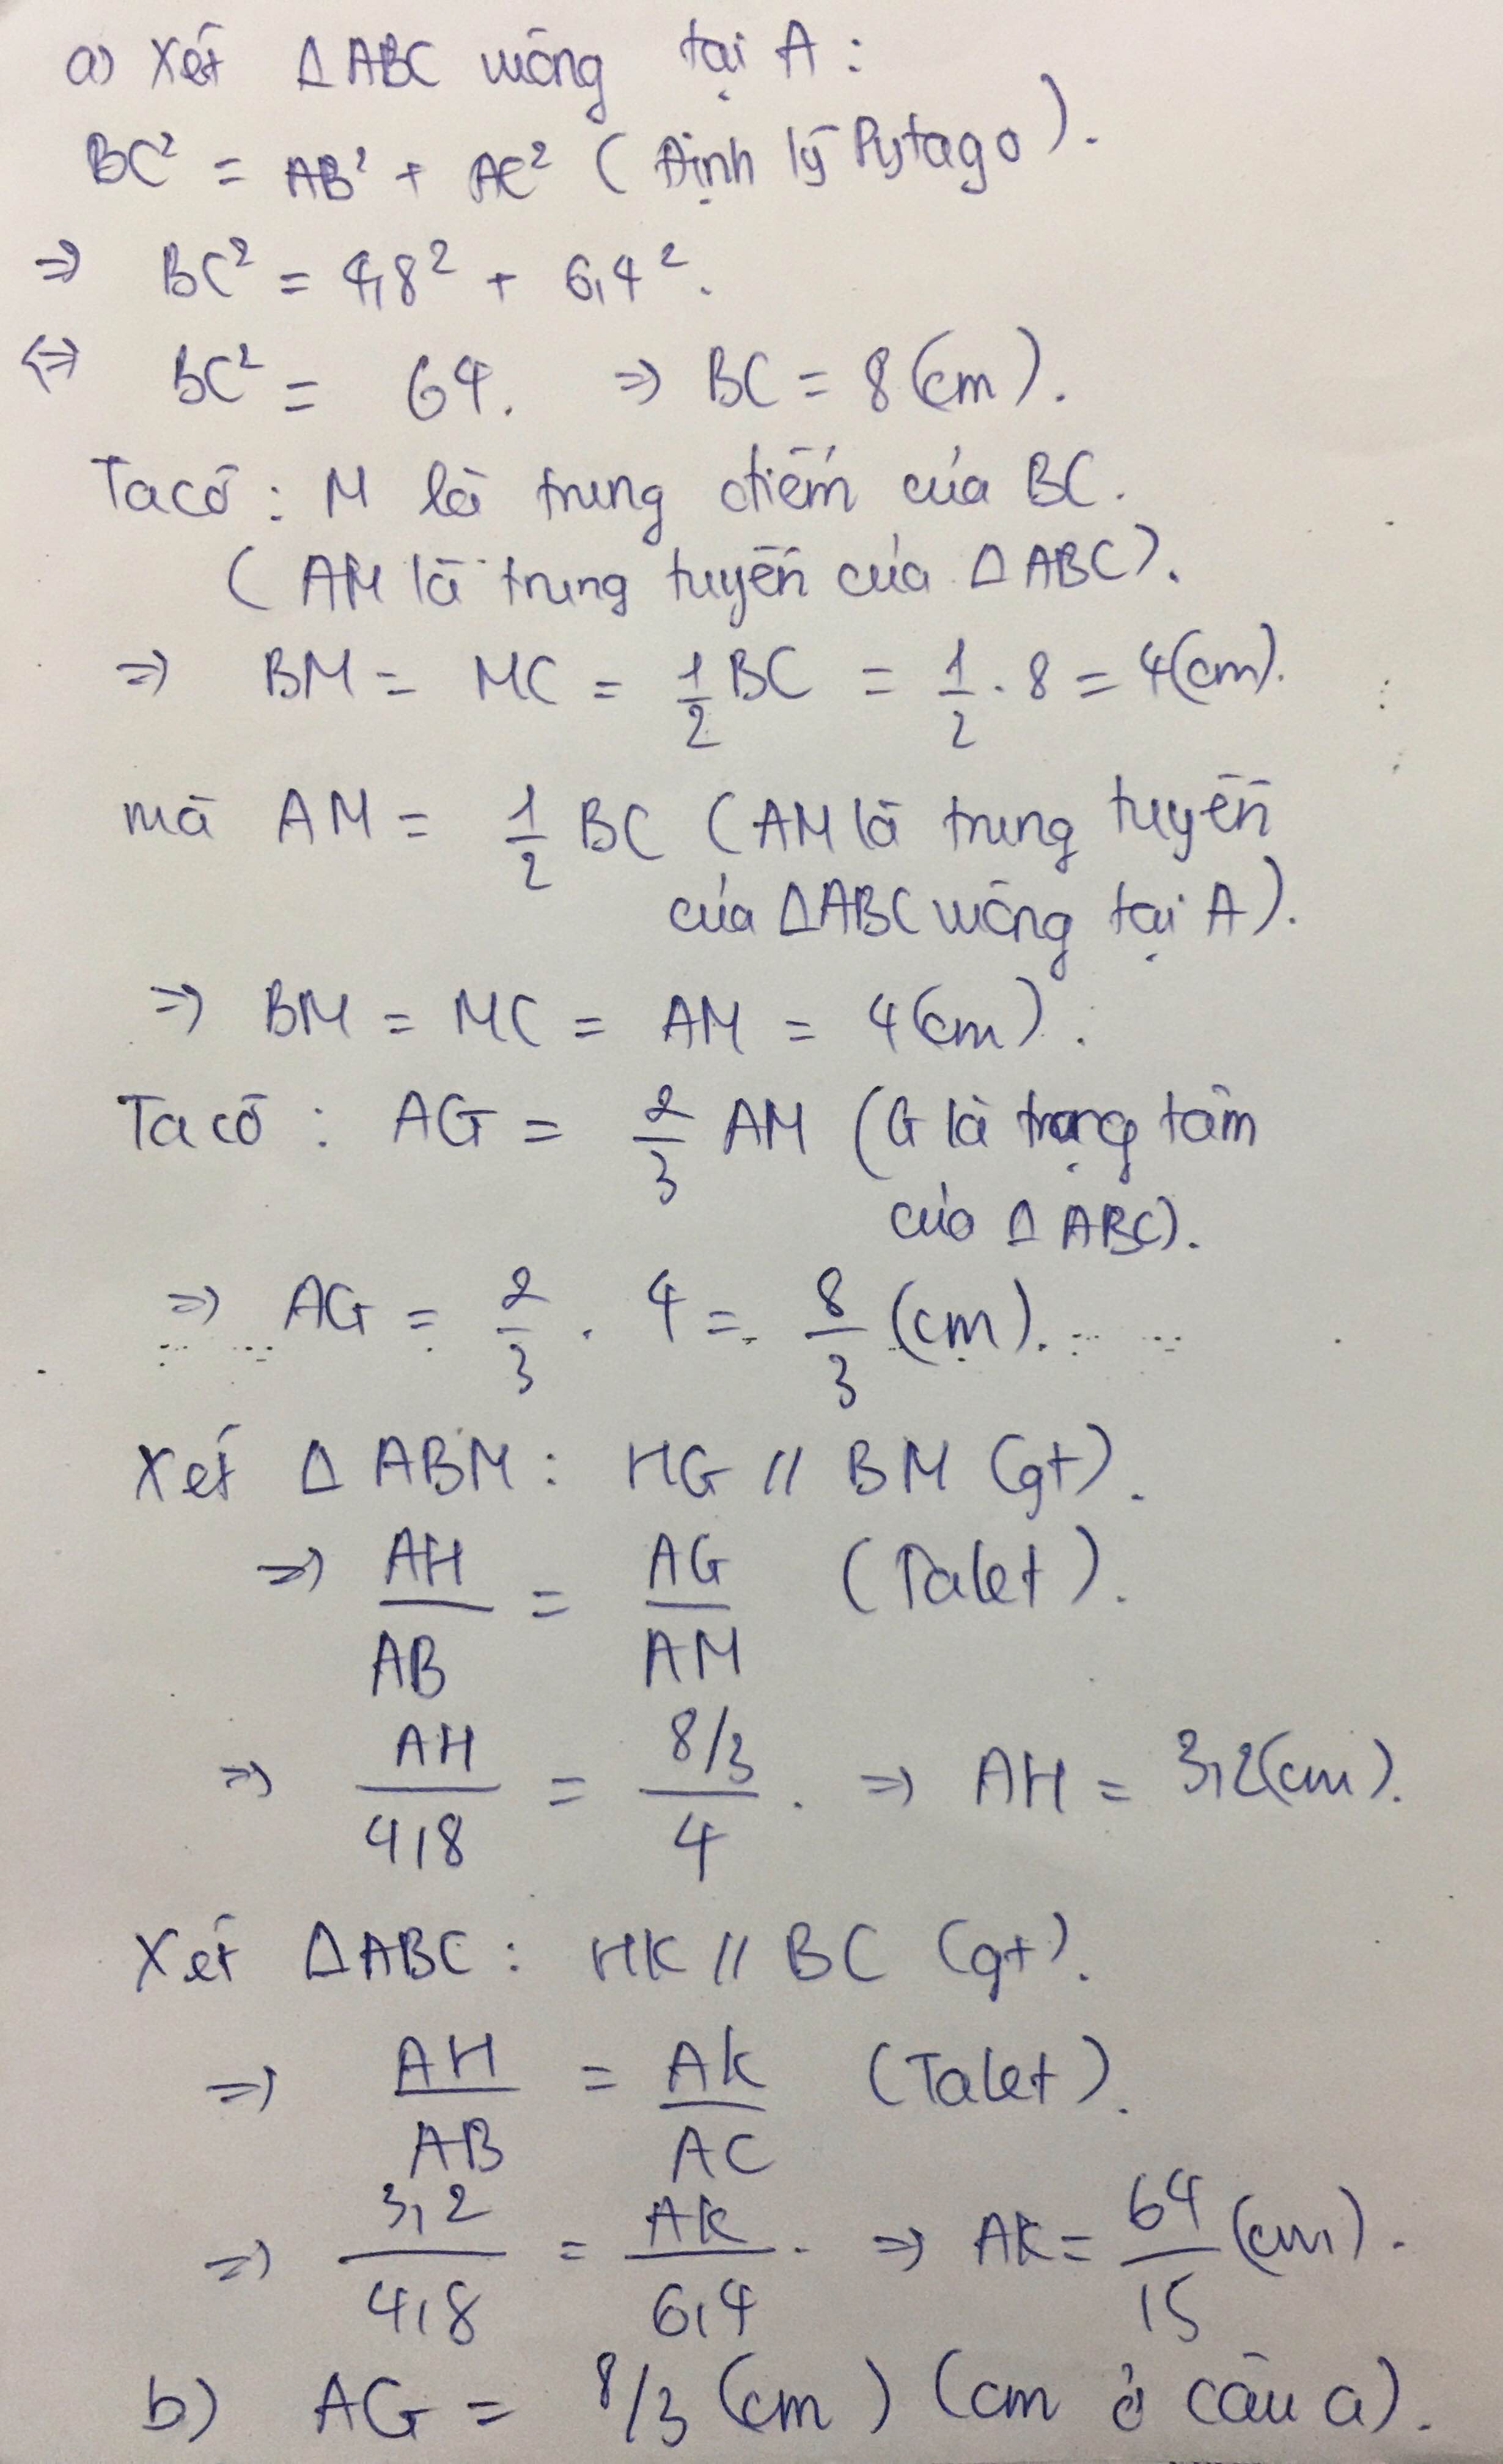 a) Xét Δ ABC vuông tại A :
BC² = AB² + AC² ( Định lý Pytago ).
⇒ BC² = 4,8² + 6,4².
⇔ BC² = 64. ⇒ BC = 8 (cm).
Ta có : M là trung điểm của BC.
( AM là trung tuyến của Δ ABC).
⇒ BM = MC = 1/2 BC = 1/2 . 8 = 4 (cm).
mà AM = 1/2 BC ( AM là trung tuyến
của Δ ABC vuông tại A ).
⇒ BM = MC = AM = 4 (cm).
Ta có : AG = 2/3 AM (G là trọng tâm
của Δ ABC).
⇒ AG = 2/3 . 4 = 8/3 (cm).
Xét Δ ABM : HG // BM (gt).
⇒ AH/AB = AG/AM (Talet).
⇒ AH/4,8 = 8/3/4 . ⇒ AH = 3,2 (cm).
Xét Δ ABC : HK // BC (gt).
⇒ AH/AB = AK/AC (Talet).
⇒ 3,2/4,8 = AK/6,4 . ⇒ AK = 64/15 (cm).
b) AG = 8/3 (cm) (cm ở câu a).